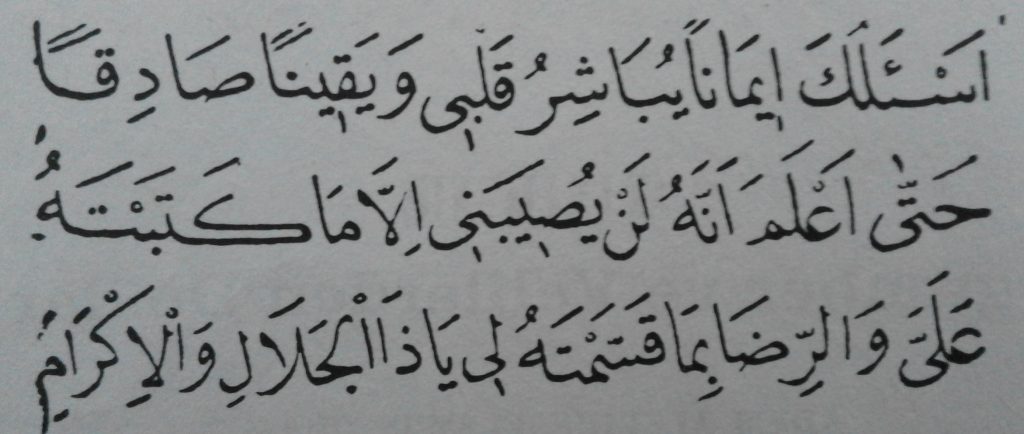 اَسْئَلُكَ اِيمَاناً يُبَاشِرُ قَلْبِى وَيَقِينًا صَادِقًا
حَتّٰى اَعْلَمَ اَنَّهُ لَنْ يُصِيبَنِى اِلَّا مَا كَتَبْتَهُ
عَلَىَّ وَالرِّضَا بِمَا قَسَمْتَهُ لِى يَا ذَا الْجَلَالِ وَالْاِكْرَامِ